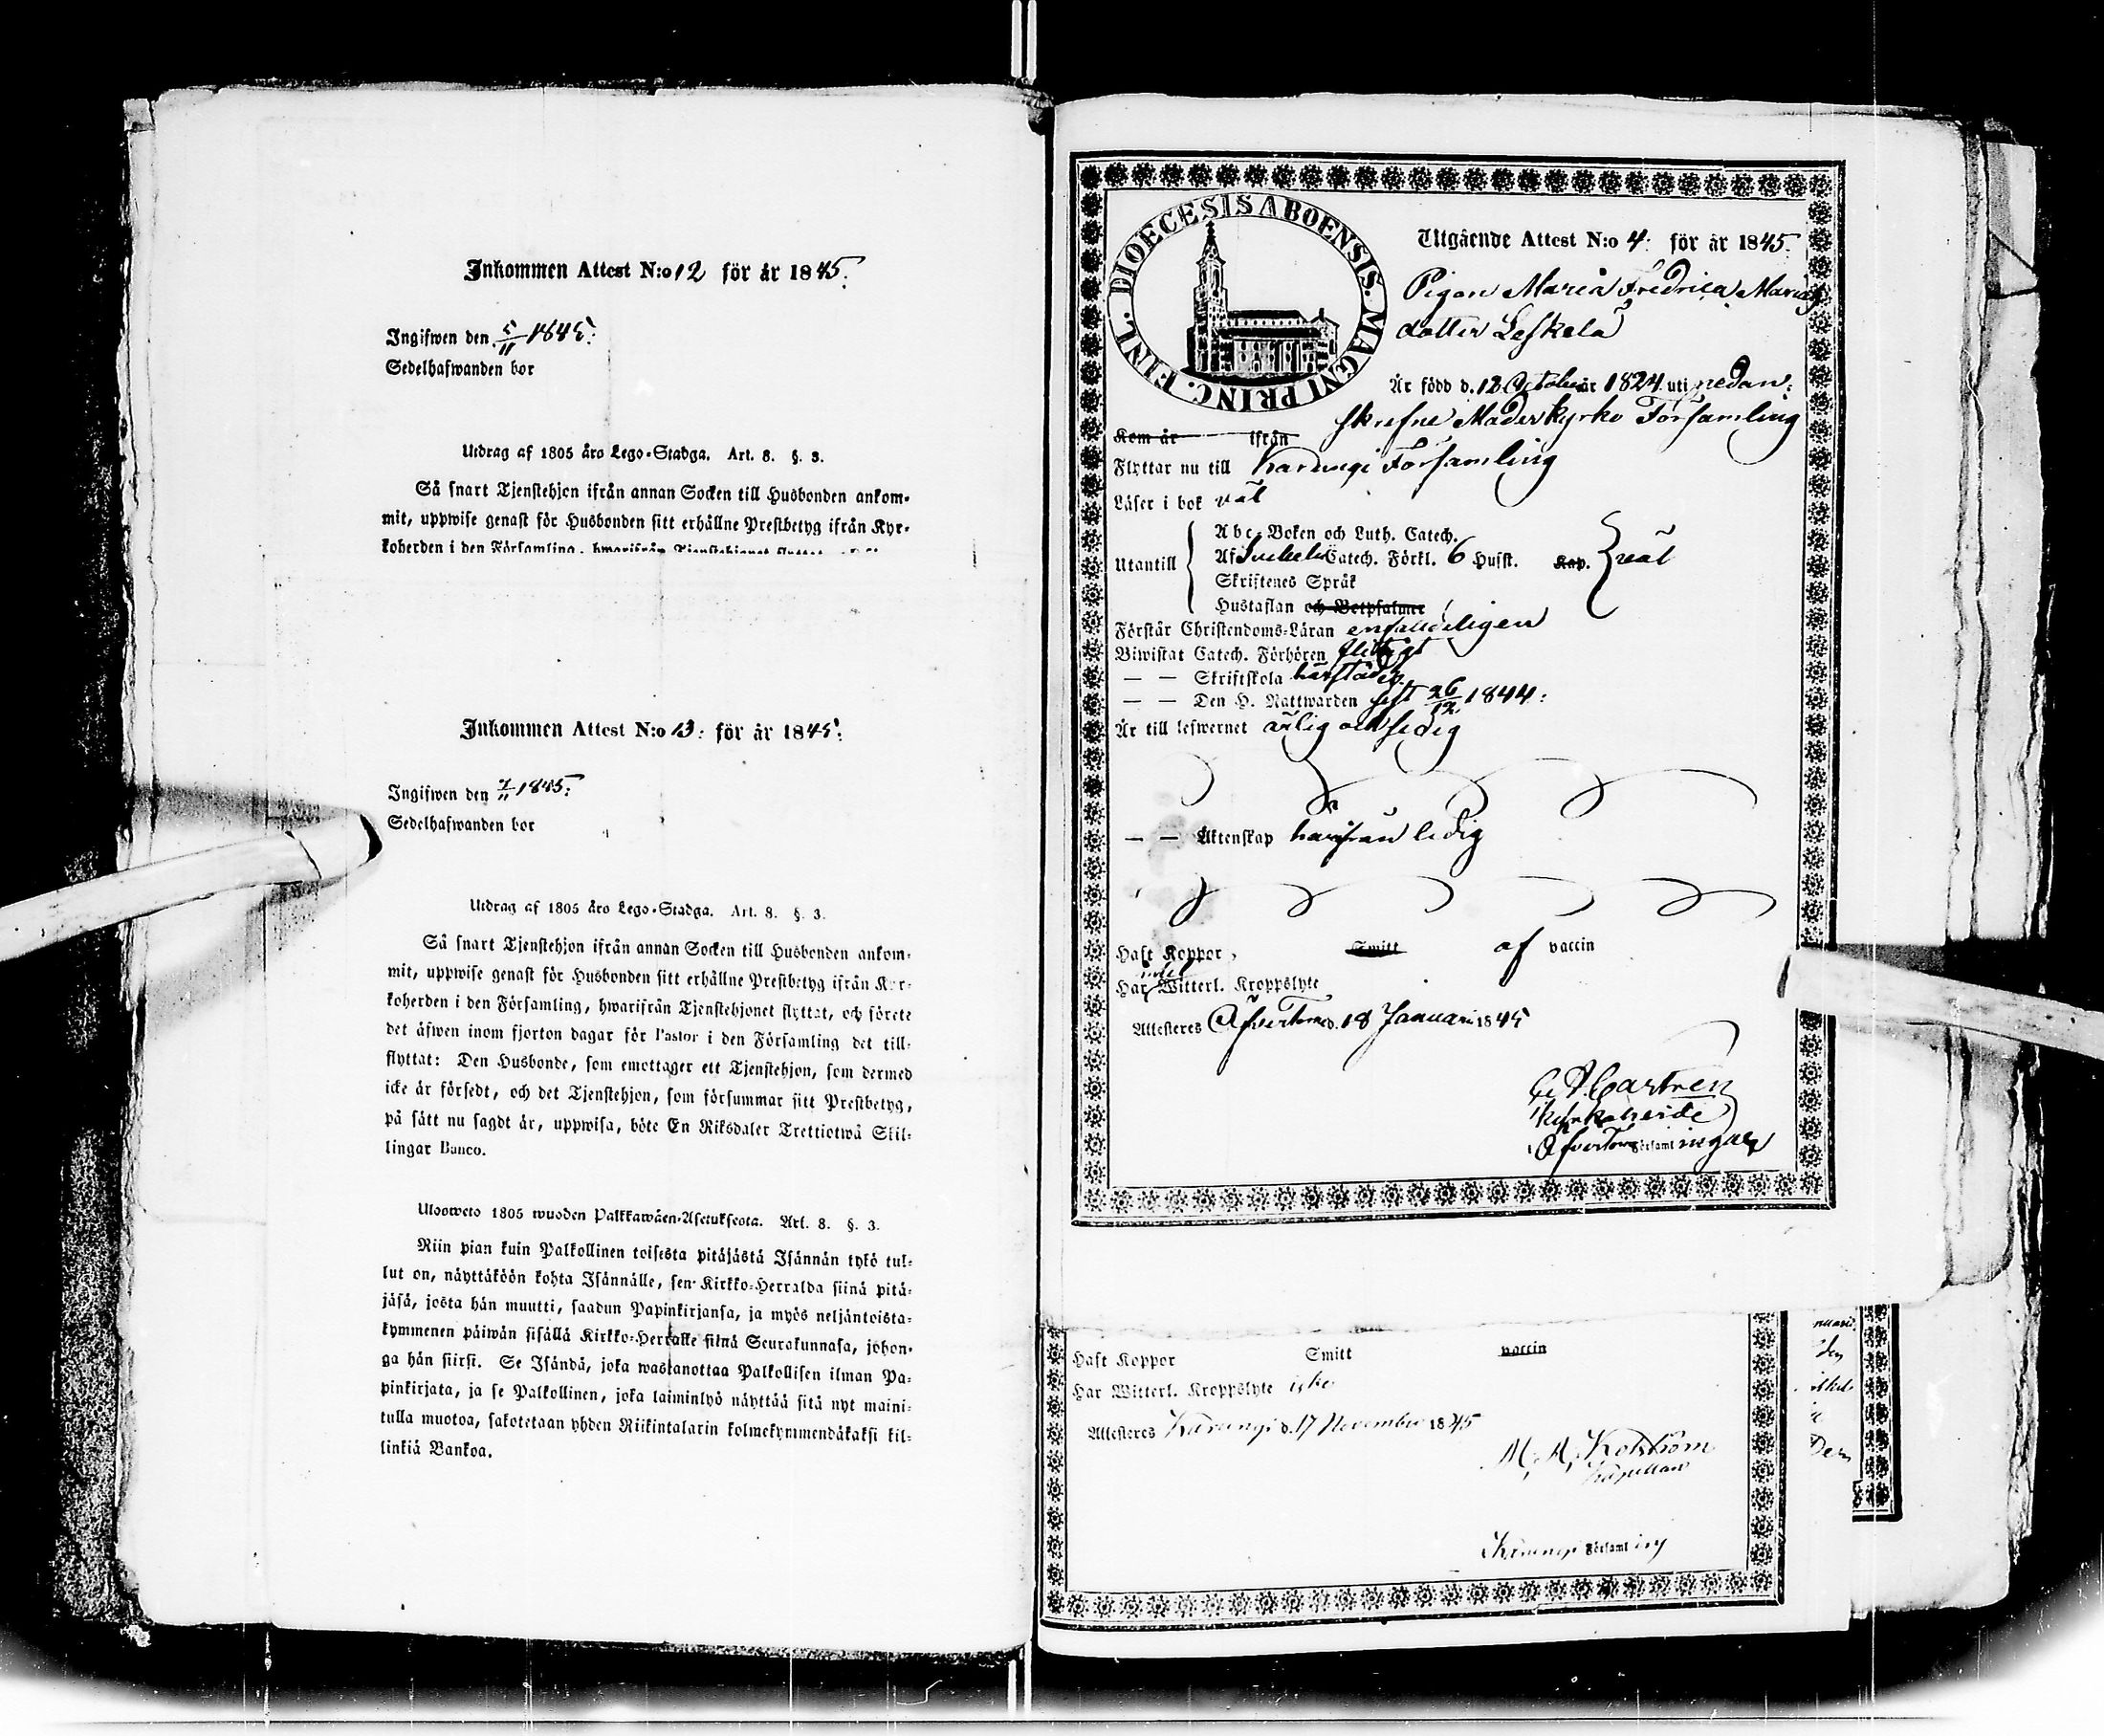 Inkommen Attest N:o 12 för år 1845.
Ingifwen den 5/11 1845.
Sedelhafwanden bor
Utdrag af 1805 års Lego-Stadga. Art. 8. §. 3.
Så snart Tjenstehjon ifrån annan Socken till Husbonden ankom-
mit, uppwise genast för Husbonden sitt erhållne Prestbetyg ifrån Kyr-
koherden i den Församling, hwarifrån Tjenstehjonet flyttat
Inkommen Attest N:o 13: för år 1845:
Ingifwen den 7/11 1845:
Sedelhafwanden bor
Utdrag af 1805 års Lego-Stadga. Art. 8. §. 3.
Så snart Tjenstehjon ifrån annan Socken till Husbonden ankom-
mit, uppwise genast för Husbonden sitt erhållne Prestbetyg ifrån Kyr-
koherden i den Församling, hwarifrån Tjenstehjonet flyttat, och förete
det äfwen inom fjorton dagar för Pastor i den Församling det till-
flyttat: Den Husbonde, som emottager ett Tjenstehjon, som dermed
icke är försedt, och det Tjenstehjon, som försummar sitt Prestbetyg,
på sätt nu sagdt är, uppwisa, böte En Riksdaler Trettiotwå Skil-
lingar Banco.
Ulosweto 1805 wuoden Palkkawäen-Asetuksesta. Art. 8. §. 3.
Niin pian kuin Palkollinen toisesta pitäjästä Isännän tykö tul-
lut on, näyttäköön kohta Isännälle, sen Kirkko-Herralda siinä pitä-
jäsä, josta hän muutti, saadun Papinkirjansa, ja myös neljäntoista-
kymmenen päiwän sisällä Kirkko-Herralle siinä Seurakunnasa, johon-
ga hän siirsi. Se Isändä, joka wastanottaa Palkollisen ilman Pa-
pinkirjata, ja se Palkollinen, joka laiminlyö näyttää sitä nyt maini-
tulla muotoa, sakotetaan yhden Riikintalarin kolmekymmendäkaksi kil-
linkiä Bankoa.
DIOECESIS ABOENSIS. MAGNI PRINC. FINL.
Utgående Attest N:o 4: för år 1845.
Pigan Maria Fredrica Maria
dotter Leskelä
Är född d. 12 October år 1824 uti nedan-
skrefne Moderkyrko Församling
Kom år ifrån
Flyttar nu till Karungi Församling
Läser i bok väl
Utantill
Abc-Boken och Luth. Catech.
Af Svebelii Catech. Förkl. 6 Hufst. Kap. väl
Skriftenes Språk
Hustaflan och Botpsalmer
Förstår Christendoms-Läran enfaldeligen
Biwistat Catech. Förhören flitigt
— — Skriftskola härstädes
— — Den H. Nattwarden sist 26/12 1844:
Är till lefwernet ärlig och sedig
— — Äktenskap härifrån ledig
Haft Koppor, Smitt af vaccin
intet
Har Witterl. Kroppslyte
Attesteres Öfvertorn. d. 18 Januari 1845
Castrén
Kyrkoherde
Öfvertorn. Församlingar
Haft Koppor Smitt vaccin
Har Witterl. Kroppslyte icke
Attesteres Karungi d. 17 November 1845
Kapellan
Karungi Församling
den
Den